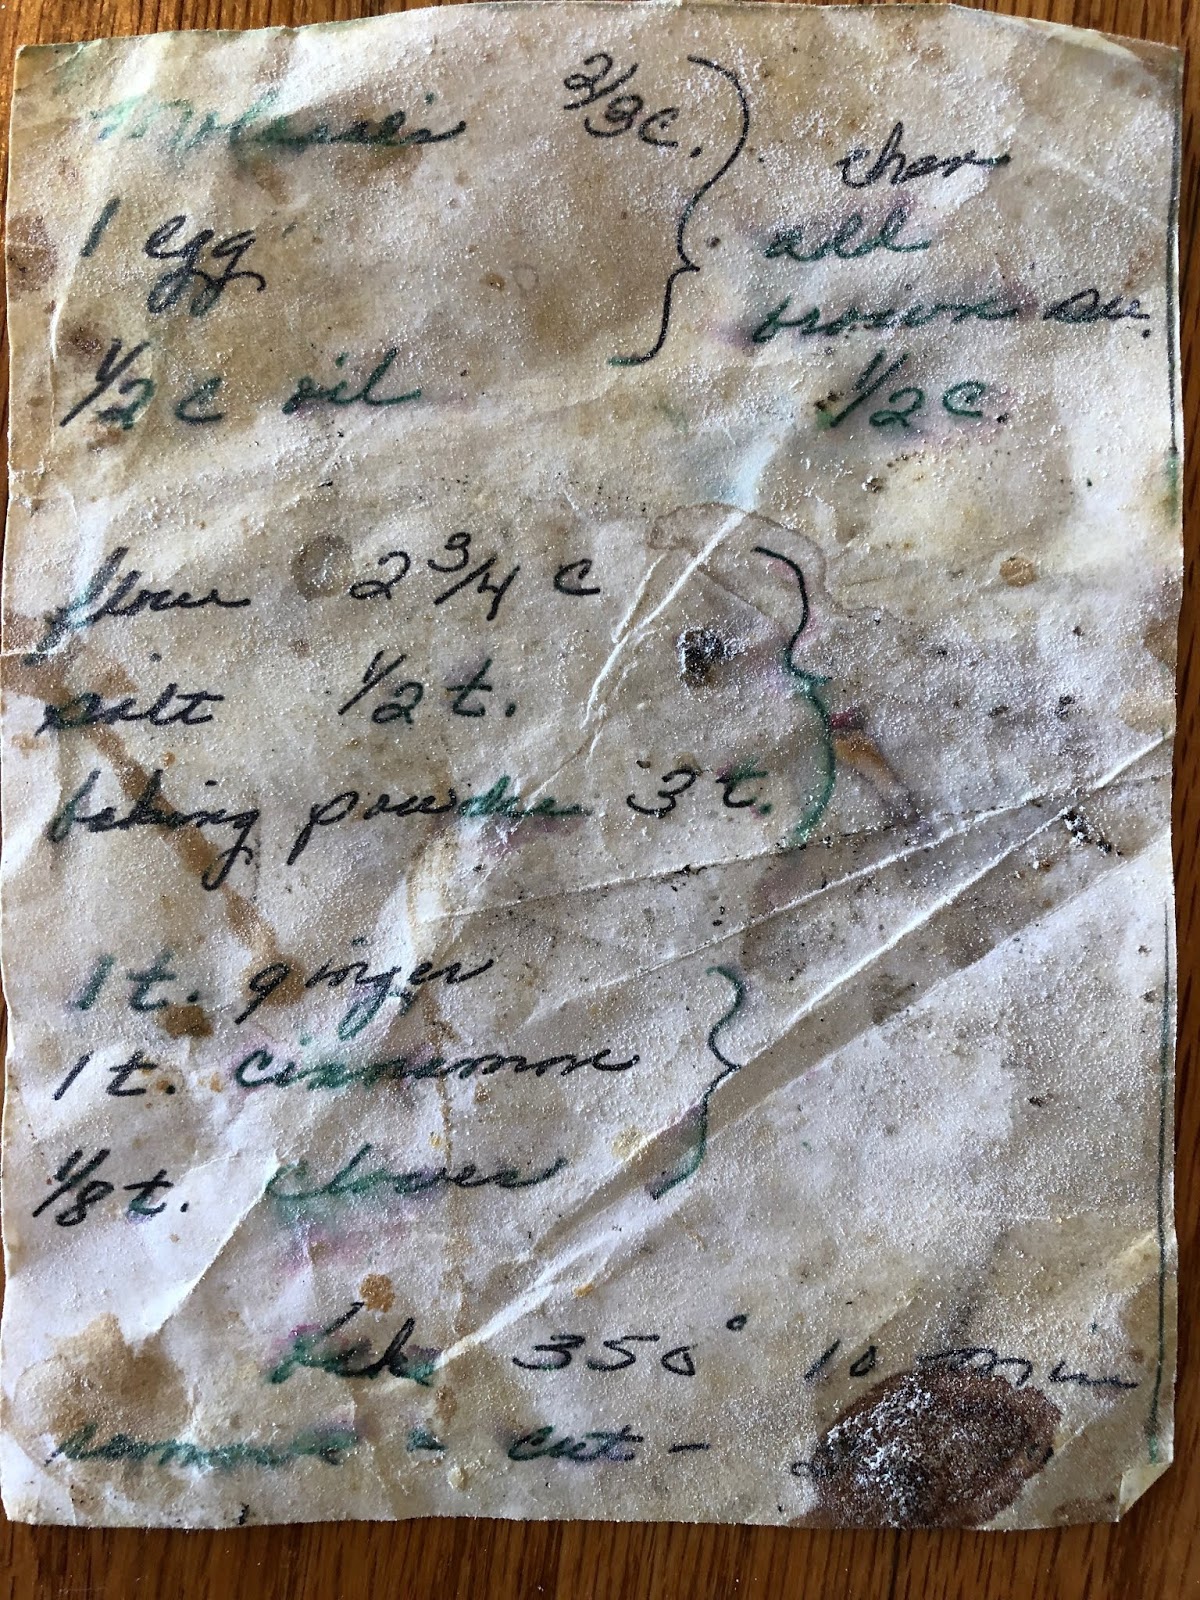 Molasses 2/3 c.
1 egg
1/2 c oil
then
add
brown su.
1/2 c.
flour 2 3/4 c
salt 1/2 t.
baking powder 3 t.
1 t. ginger
1 t. cinnemon
1/8 t. cloves
bake 350° 10 min
remove - cut -